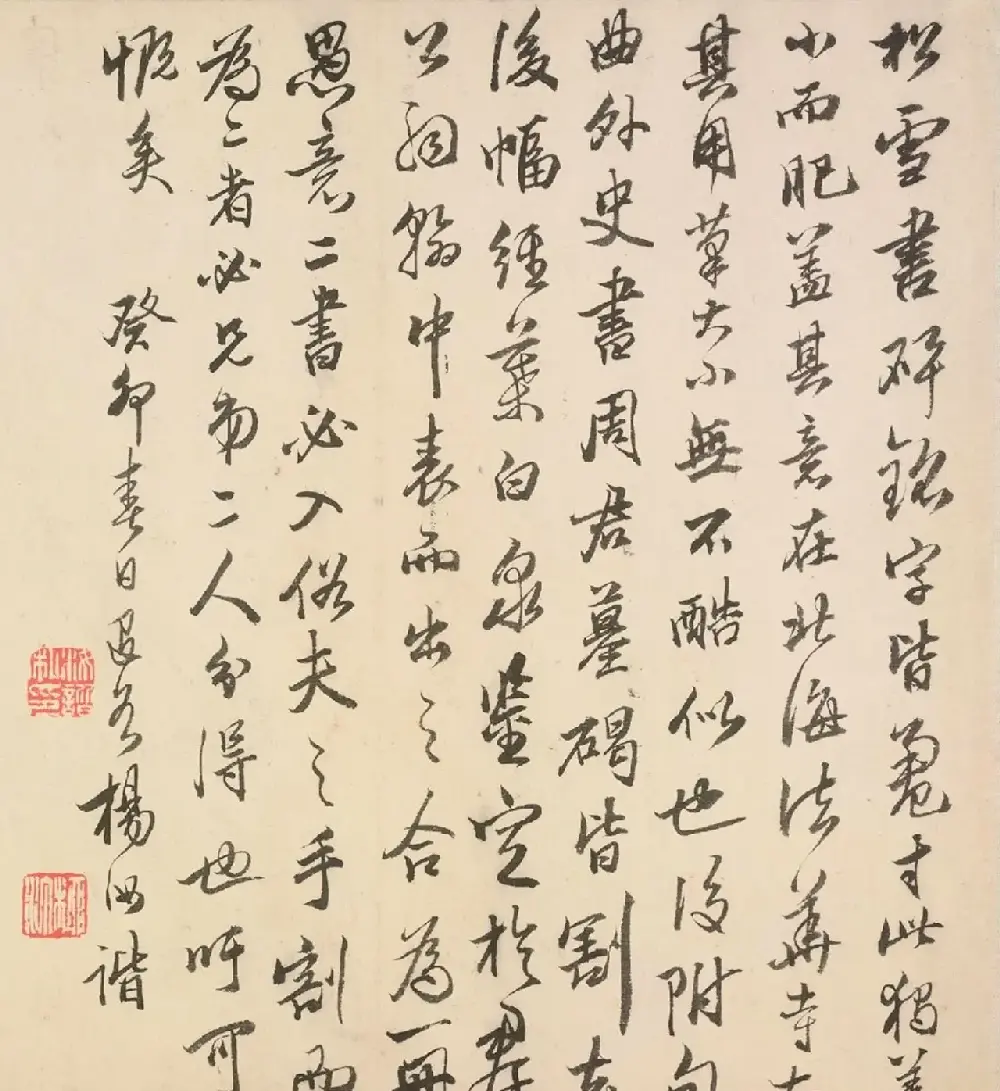 松雪書碑銘字皆寸此獨差
小而肥蓋其意在北海法華寺
其用筆大小無不酷似也後附句
曲外史書周君墓碣皆割去
後幅經葉白泉鑒定於群
公詞翰中表而出之合為一冊
愚意二書必入俗夫之手割兩
為二者必兄弟二人分得也吁可
慨矣 癸卯春日退谷楊汝諧